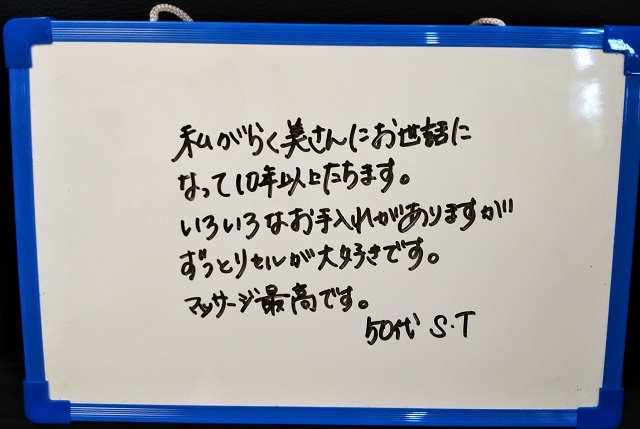 私がらく美さんにお世話に
なって10年以上たちます。
いろいろなお手入れがありますが
ずっとリセルが大好きです。
マッサージ最高です。
50代 S.T